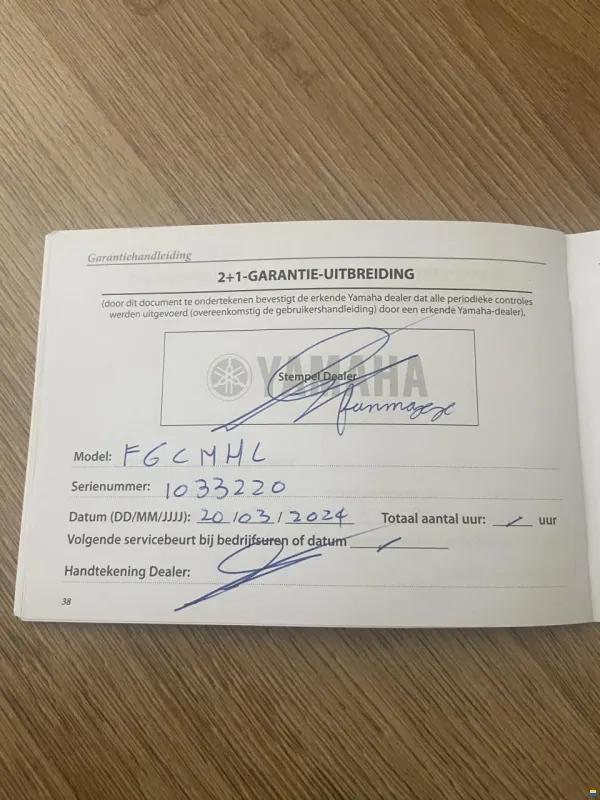 Garantiehandleiding
2+1-GARANTIE-UITBREIDING
(door dit document te ondertekenen bevestigt de erkende Yamaha dealer dat alle periodieke controles
werden uitgevoerd (overeenkomstig de gebruikershandleiding) door een erkende Yamaha-dealer).
YAMAHA
Stempel Dealer
Model: F6CMHL
Serienummer: 1033220
Datum (DD/MM/JJJJ): 20/03/2024 Totaal aantal uur: uur
Volgende servicebeurt bij bedrijfsuren of datum
Handtekening Dealer:
38